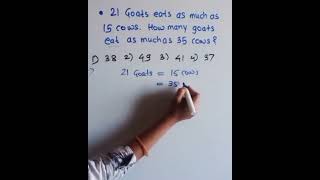 • 21 Goats eats as much as
15 cows. How many goats
eat as much as 35 cows?
1) 38 2) 49 3) 41 4) 37
21 Goats = 15 cows
= 35